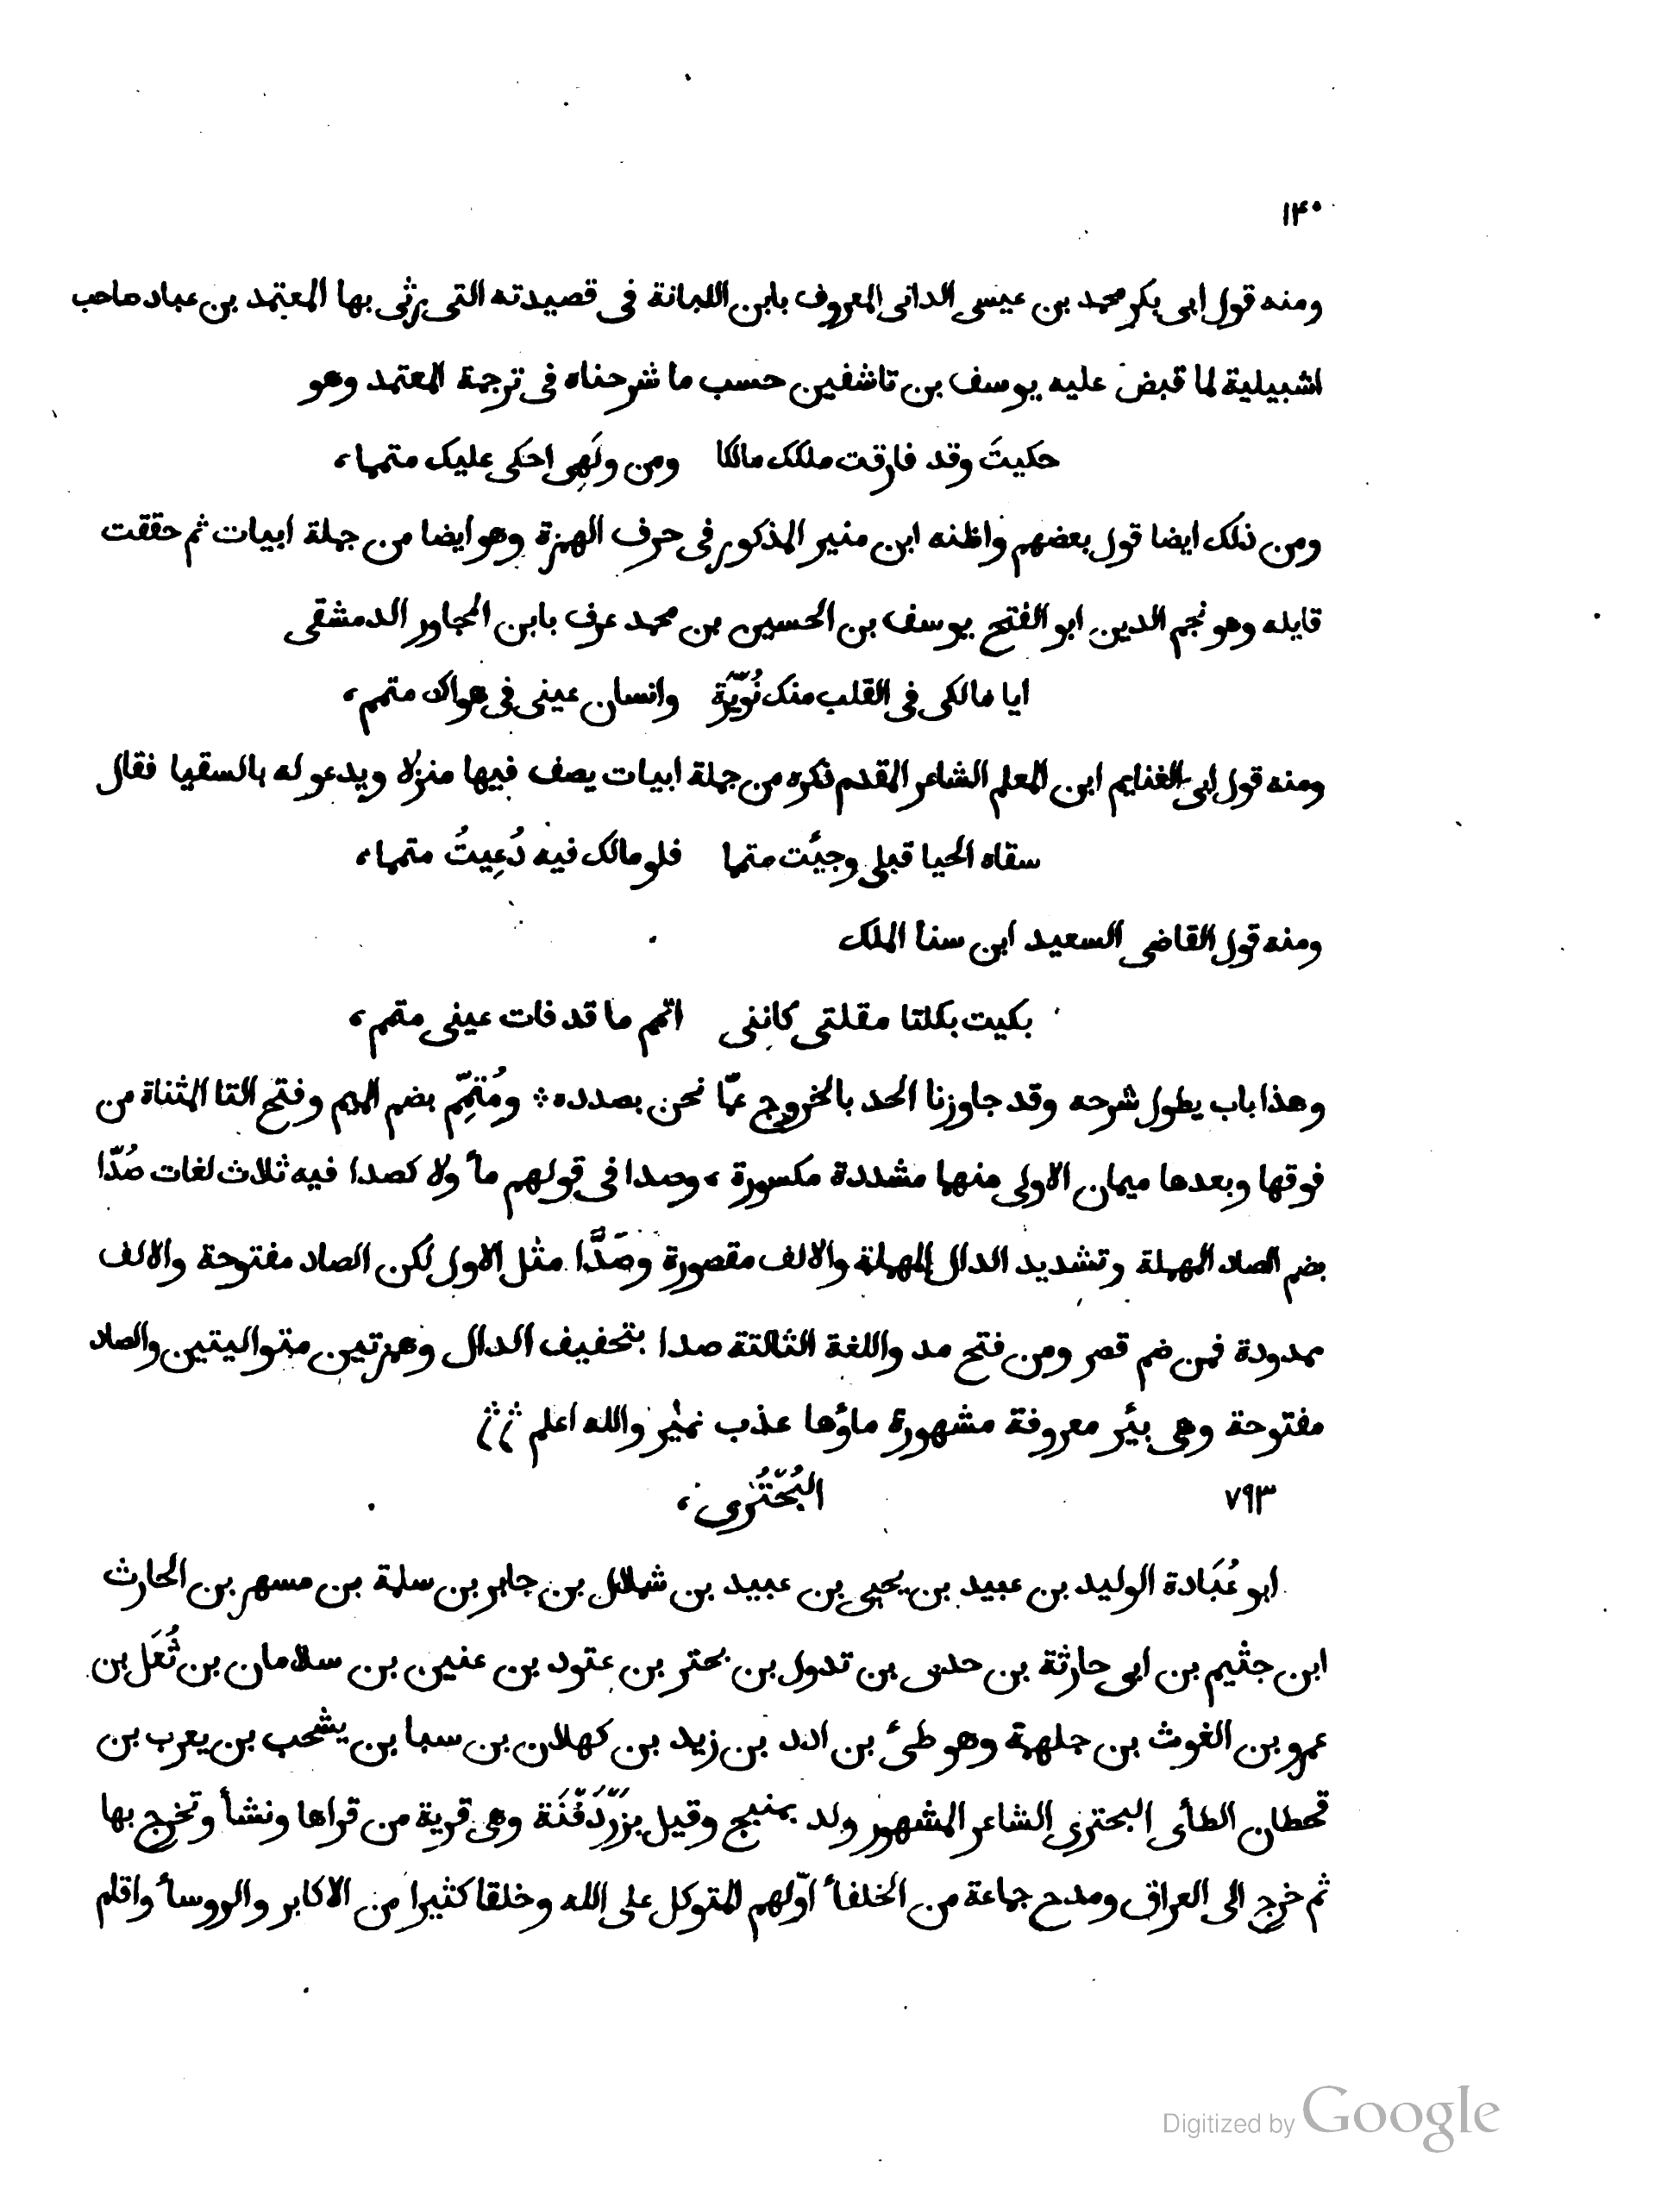 ١٤٠
ومنه قول ابى بكر محمد بن عيسى الدانى المعروف بابن اللبانة فى قصيدته التى يرثى بها المعتمد بن عباد صاحب
اشبيلية لما قبض عليه يوسف بن تاشفين حسب ما شرحناه فى ترجمة المعتمد وهو
حكيتَ وقد فارقت ملكك مالكا ومن ولَهِى احكى عليك متمما،
ومن ذلك ايضا قول بعضهم واظنه ابن منير المذكور فى حرف الهمزة وهو ايضا من جملة ابيات ثم حققت
قايله وهو نجم الدين ابو الفتح يوسف بن الحسين بن محمد عرف بابن المجاور الدمشقى
ايا مالكى فى القلب منك نُوَيّرَة وانسان عينى فى هواك متمم،
ومنه قول ابى الغنايم ابن المعلم الشاعر المقدم ذكره من جملة ابيات يصف فيها منزلا ويدعو له بالسقيا فقال
سقاه الحيا قبلى وجئت متمما فلو مالك فيه دُعِيتُ متمما،
ومنه قول القاضى السعيد ابن سنا الملك
بكيت بكلتا مقلتى كاننى اتمم ما قد فات عينى متمم،
وهذا باب يطول شرحه وقد جاوزنا الحد بالخروج عمّا نحن بصدده ⁘ ومُتمِّم بضم الميم وفتح التا المثناة من
فوقها وبعدها ميمان الاولى منهما مشددة مكسورة، وصدا فى قولهم مأ ولا كصدا فيه ثلاث لغات صُدّا
بضم الصاد المهملة وتشديد الدال المهملة والالف مقصورة وصَدَّا مثل الاول لكن الصاد مفتوحة والالف
ممدودة فمن ضم قصر ومن فتح مد واللغة الثالثة صدا بتخفيف الدال وهمزتين متواليتين والصاد
مفتوحة وهى بئر معروفة مشهورة ماؤها عذب نمير والله اعلم
٧٩٣ البُحْتُرى،
ابو عُبَادة الوليد بن عبيد بن يحيى بن عبيد بن شملال بن جابر بن سلمة بن مسهر بن الحارث
ابن جثيم بن ابى حارثة بن جدى بن تدول بن بحتر بن عتود بن عنين بن سلامان بن ثُعَل بن
عمرو بن الغوث بن جلهمة وهو طىٔ بن ادد بن زيد بن كهلان بن سبا بن يشحب بن يعرب بن
قحطان الطأى البحترى الشاعر المشهور ولد بمنبج وقيل بزَرْدُفْنَة وهى قرية من قراها ونشأ وتخرج بها
ثم خرج الى العراق ومدح جماعة من الخلفأ اوّلهم المتوكل على الله وخلقا كثيرا من الاكابر والروسأ واقام
Digitized by Google